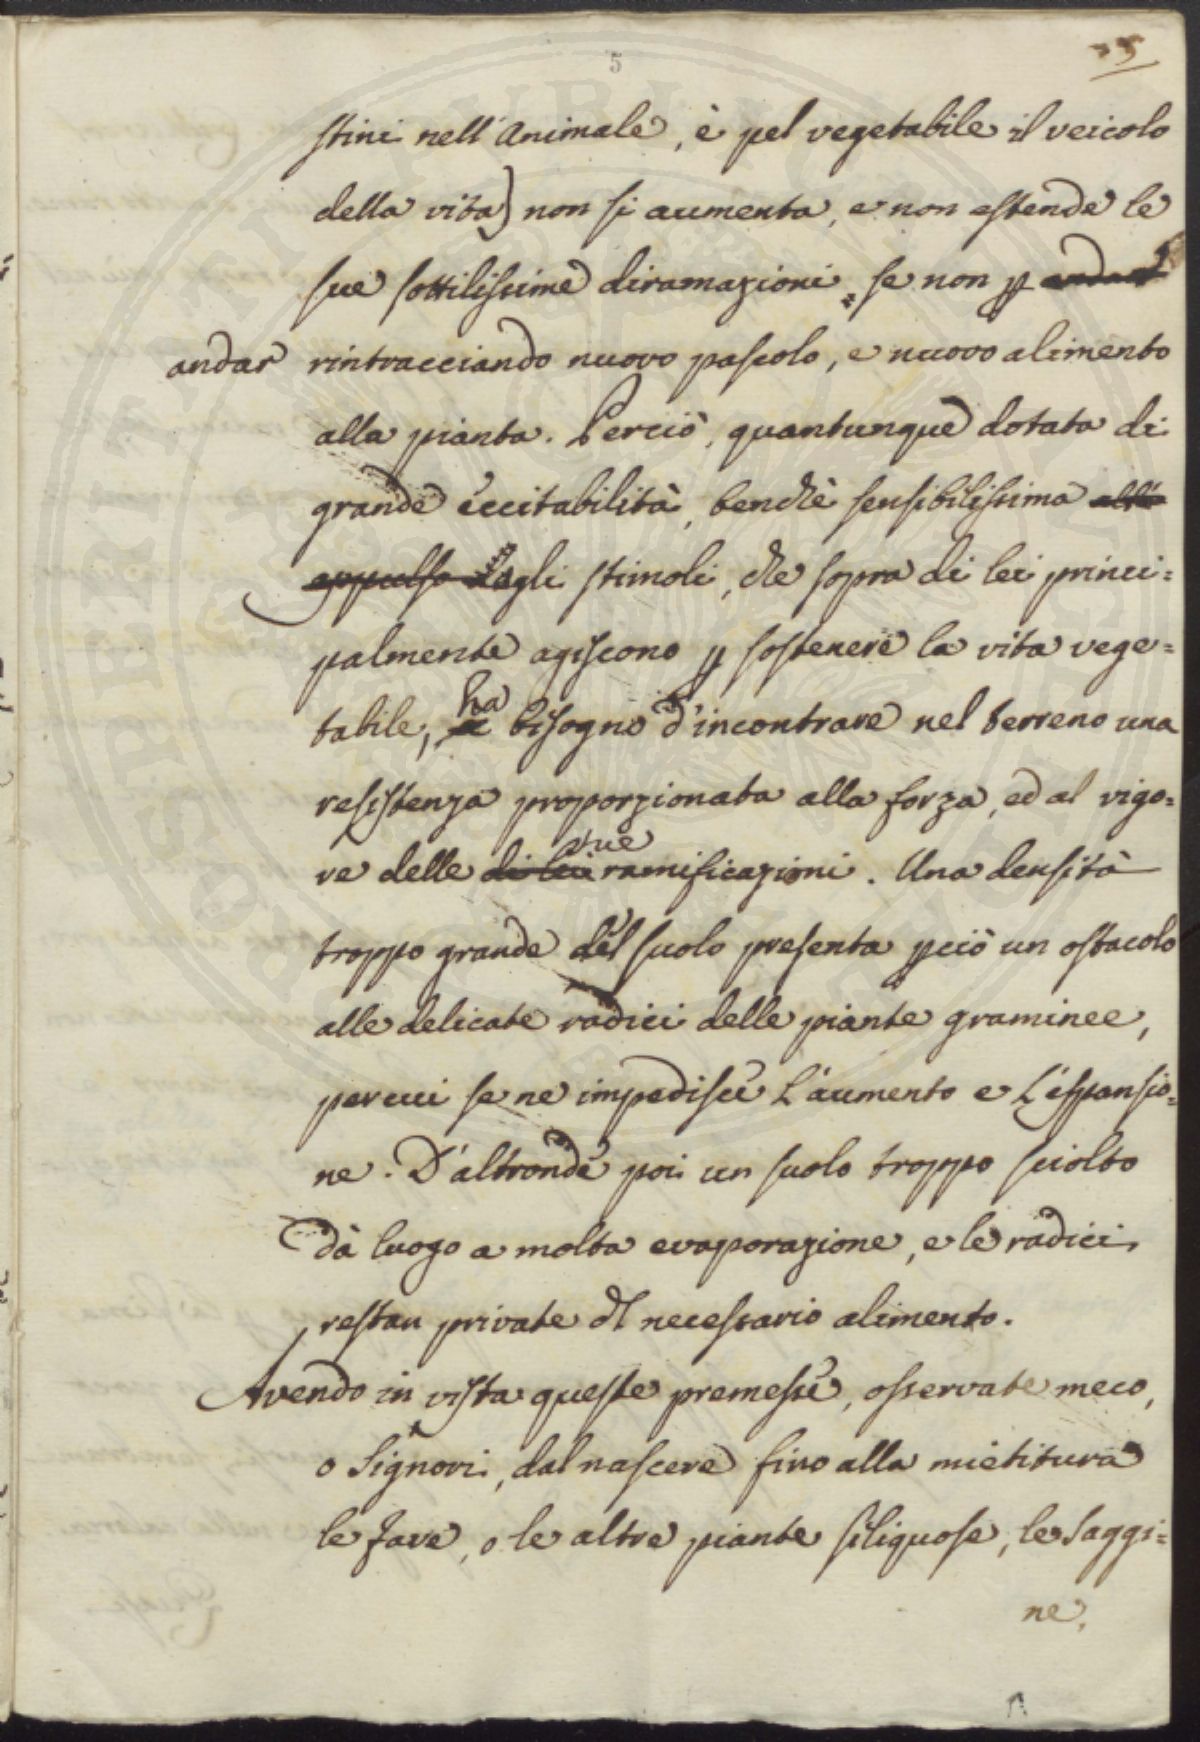 5
35
stini nell'Animale, è pel vegetabile il veicolo
della vita) non si aumenta, e non estende le
sue sottilissime diramazioni, se non p andar
andar rintracciando nuovo pascolo, e nuovo alimento
alla pianta. Perciò, quantunque dotata di
grande eccitabilità, benchè sensibilissima alli
appulso dagli stimoli, che sopra di lei princi=
palmente agiscono p sostenere la vita vege=
tabile, ha bisogno d'incontrare nel terreno una
resistenza proporzionata alla forza, ed al vigo=
re delle di lei sue ramificazioni. Una densità
troppo grande del suolo presenta pciò un ostacolo
alle delicate radici delle piante graminee,
percui se ne impedisce l'aumento e l'espansio=
ne. D'altronde poi un suolo troppo sciolto
dà luogo a molta evaporazione, e le radici
restan private dl necessario alimento.
Avendo in vista queste premesse, osservate meco,
o Signori, dal nascere fino alla mietitura
le fave, o le altre piante siliquose, le saggi=
ne,